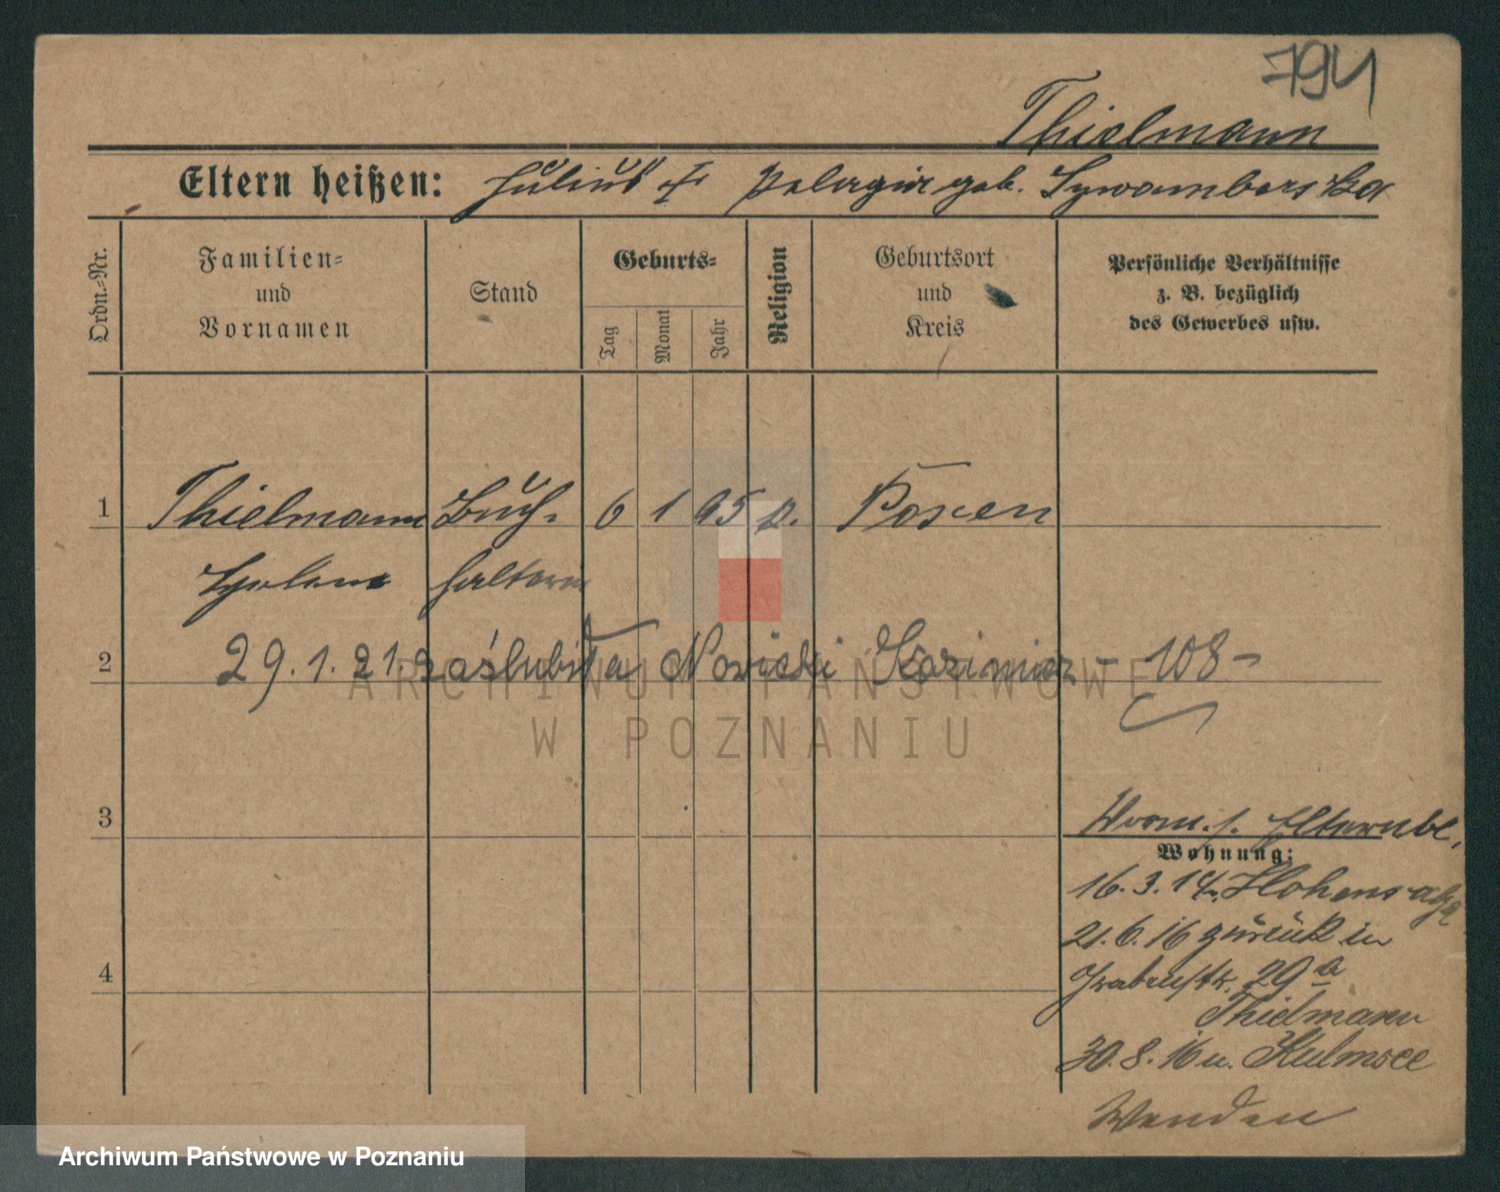 794
Thielmann
Eltern heißen: Julius & Pelagia geb.
Ordn.-Nr.
Familien-
und
Vornamen
Stand
Geburts-
Tag
Monat
Jahr
Religion
Geburtsort
und
Kreis
Persönliche Verhältnisse
z. B. bezüglich
des Gewerbes usw.
1 Thielmann Buch- 6 1 95 Posen
halterin
2 29.1.21. zaślubiła Nowicki Kazimierz - 108 -
3
Wohnung:
16.3.14. Hohensalza
21.6.16 zurück in
4
29a
Thielmann
30.8.16 n. Kulmsee
Wenden
ARCHIWUM PAŃSTWOWE
W POZNANIU
Archiwum Państwowe w Poznaniu